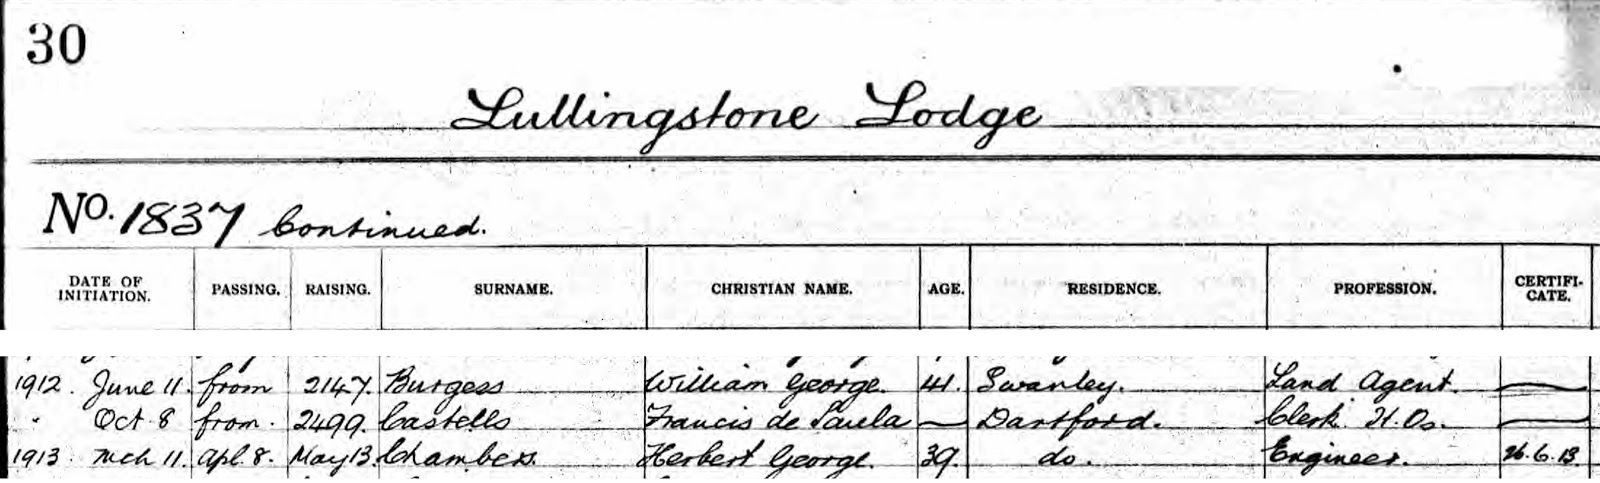 30
Lullingstone Lodge
No. 1837 Continued.
DATE OF INITIATION. PASSING. RAISING. SURNAME. CHRISTIAN NAME. AGE. RESIDENCE. PROFESSION. CERTIFI-CATE.
1912. June 11. from 2147. Burgess William George. 41. Swanley. Land Agent. —
" Oct 8 from. 2499. Castells Francis de Paula — Dartford. Clerk H.Os. —
1913. Mch 11. Apl. 8. May 13. Chambers. Herbert George. 39. do. Engineer. 26.6.13.